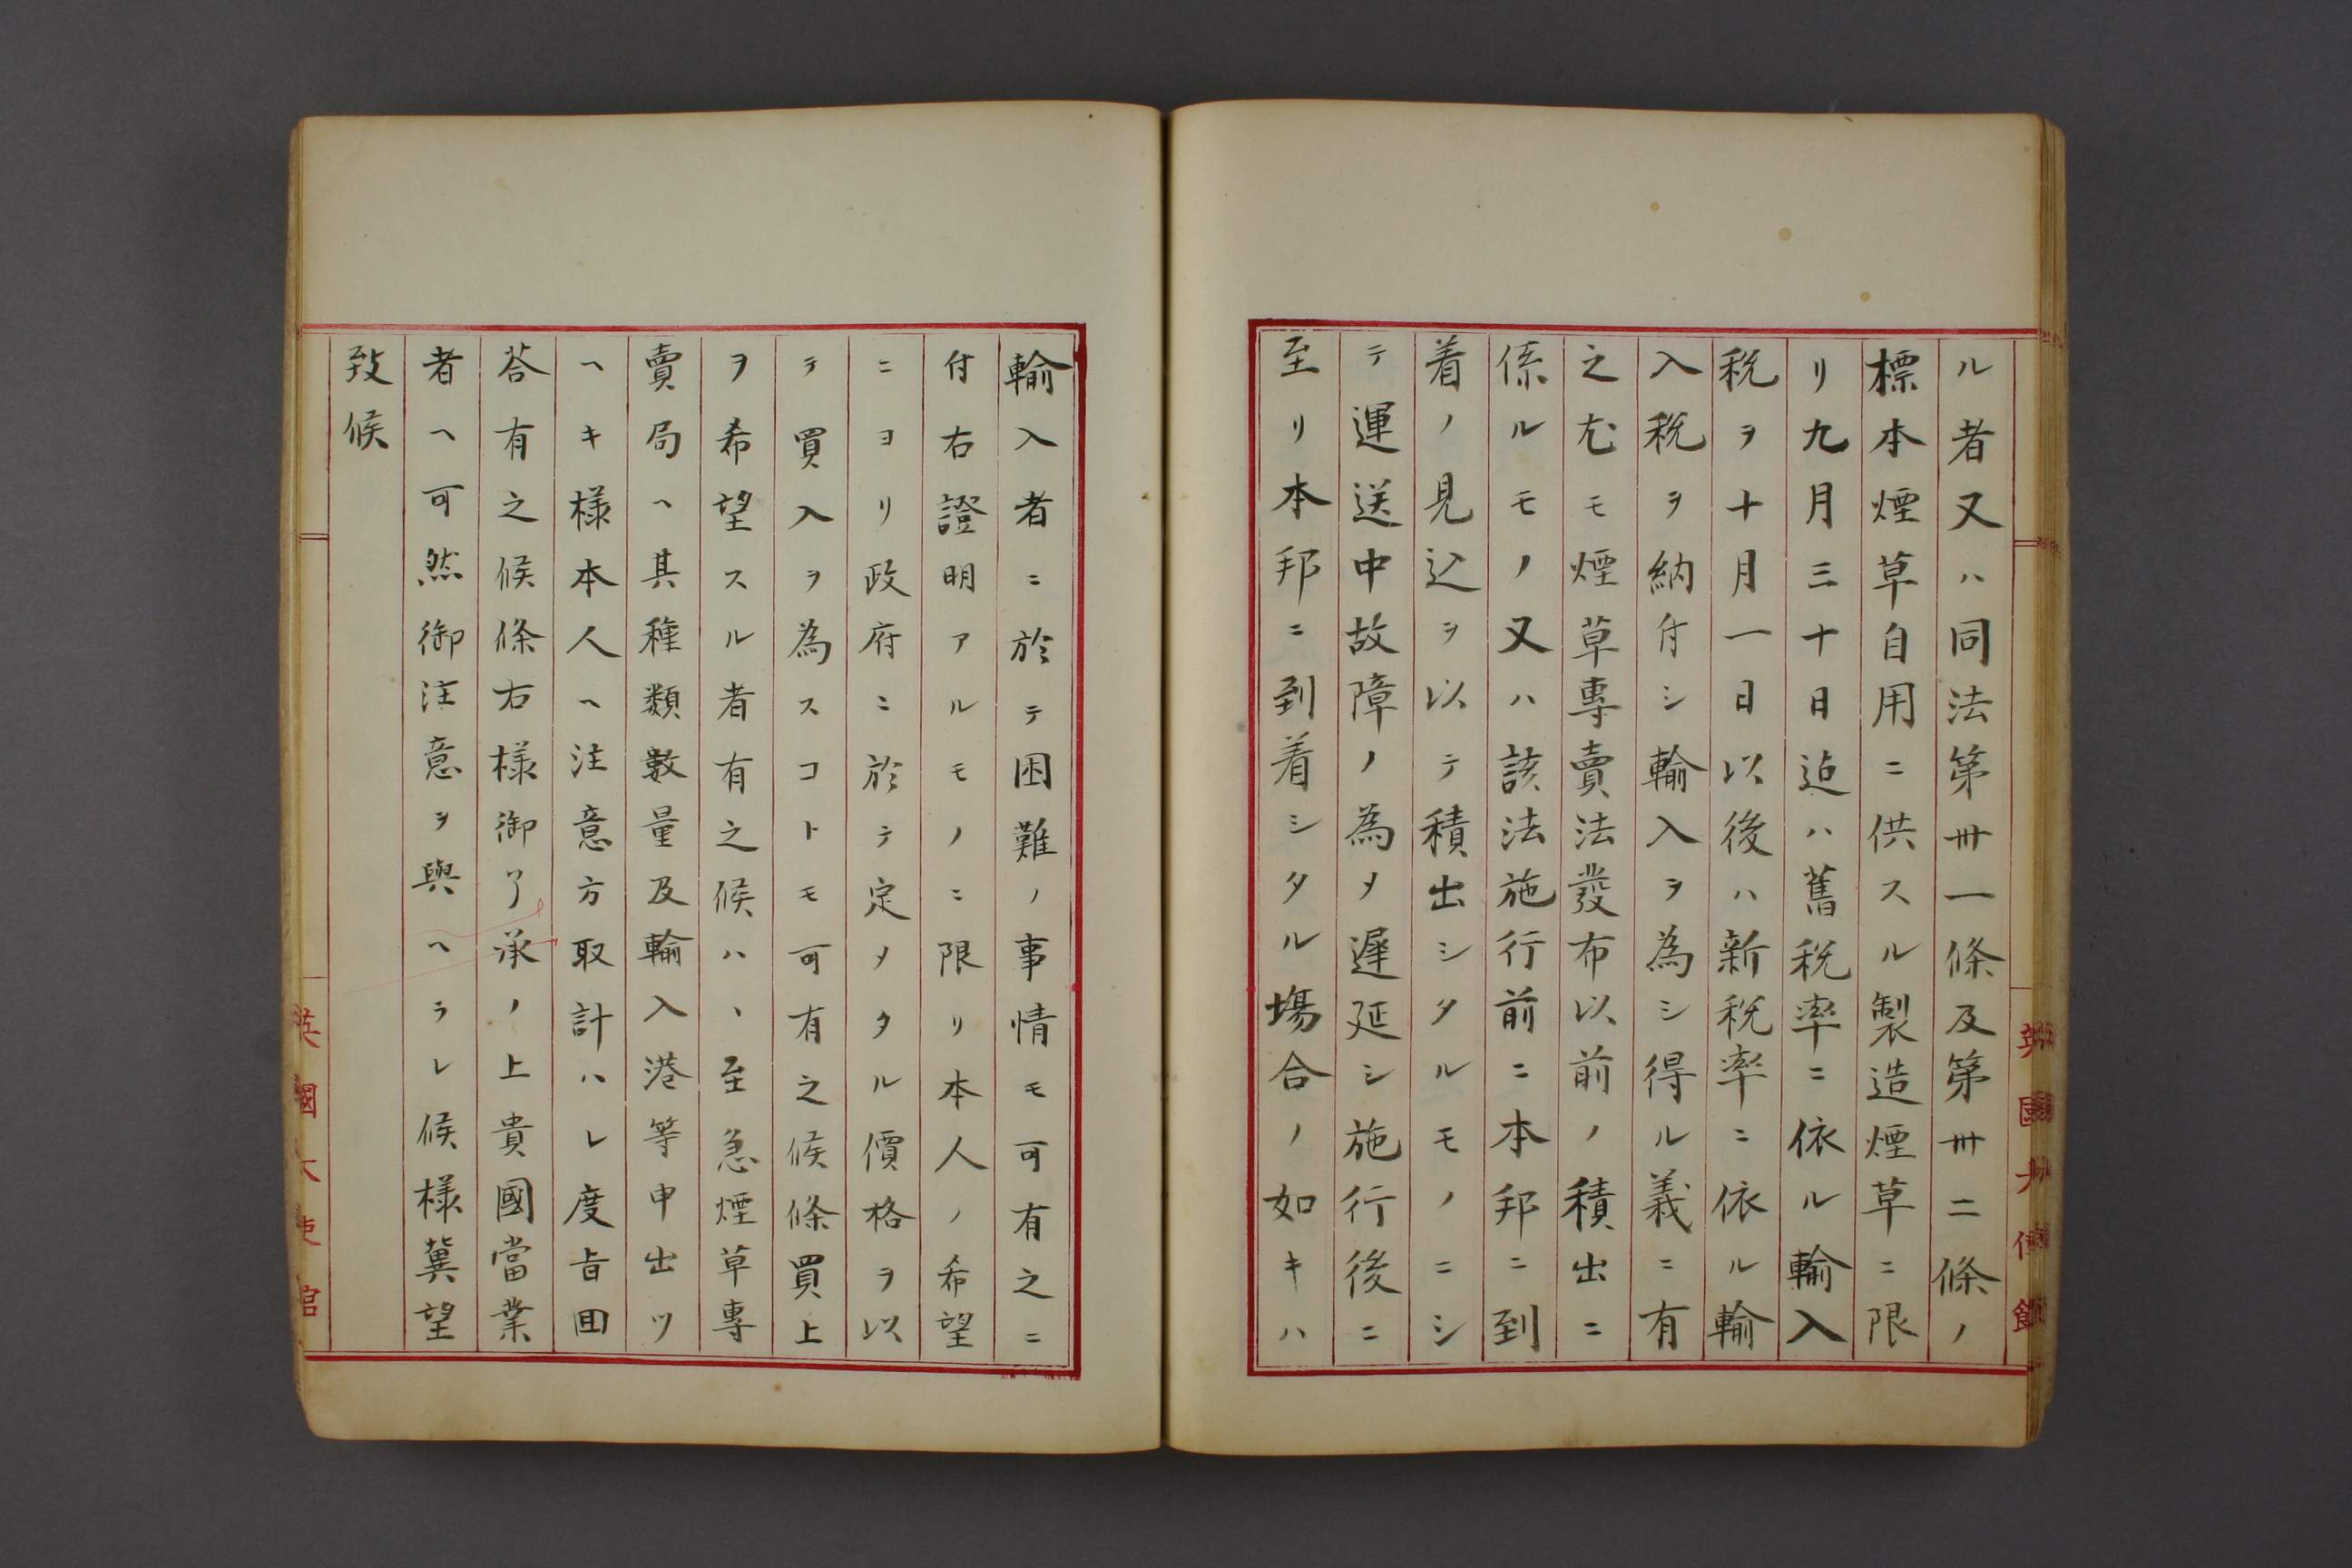 ル者又ハ同法第卅一條及第卅二條ノ
標本煙草自用ニ供スル製造煙草ニ限
リ九月三十日迠ハ舊税率ニ依ル輸入
税ヲ十月一日以後ハ新税率ニ依ル輸
入税ヲ納付シ輸入ヲ為シ得ル義ニ有
之尤モ煙草專賣法發布以前ノ積出ニ
係ルモノ又ハ該法施行前ニ本邦ニ到
着ノ見込ヲ以テ積出シタルモノニシ
テ運送中故障ノ為メ遲延シ施行後ニ
至リ本邦ニ到着シタル塲合ノ如キハ
輸入者ニ於テ困難ノ事情モ可有之ニ
付右證明アルモノニ限リ本人ノ希望
ニヨリ政府ニ於テ定メタル價格ヲ以
テ買入ヲ為スコトモ可有之候條買上
ヲ希望スル者有之候ハヽ至急煙草專
賣局ヘ其種類數量及輸入港等申出ツ
ヘキ様本人ヘ注意方取計ハレ度旨回
答有之候條右様御了承ノ上貴國當業
者ヘ可然御注意ヲ與ヘラレ候様冀望
致候
英國大使館
英國大使館